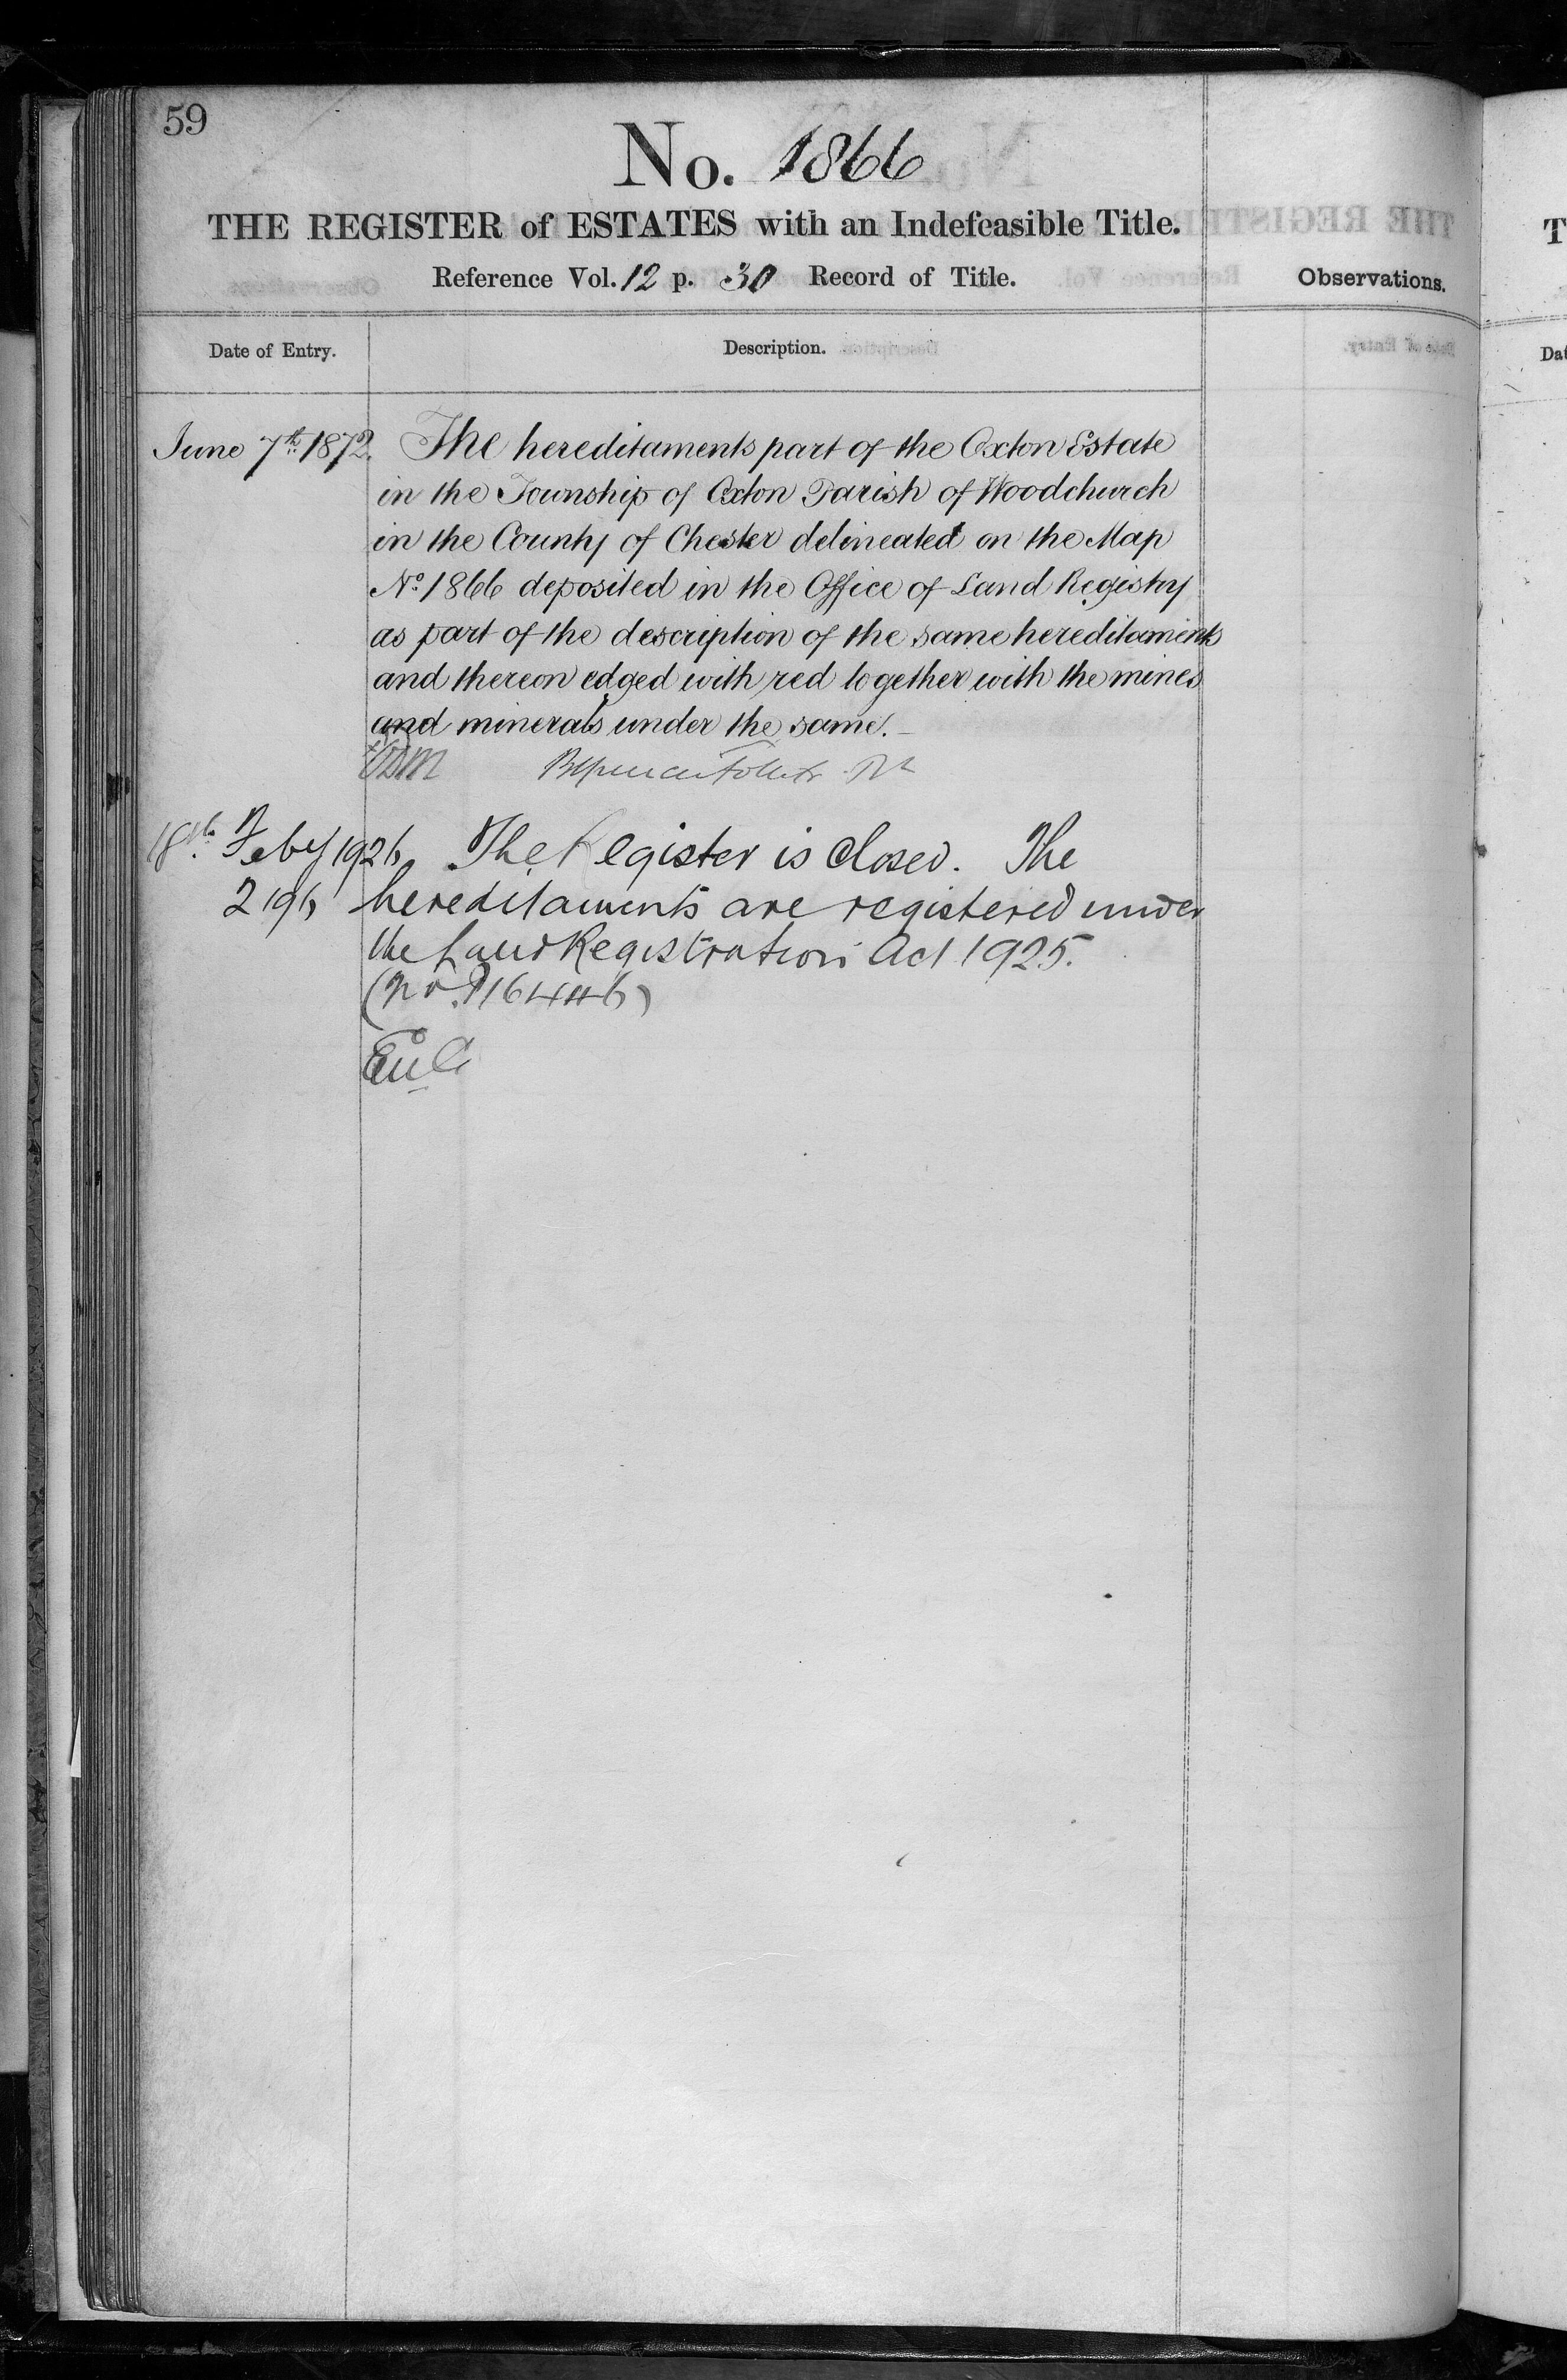 59
No. 1866
THE REGISTER of ESTATES with an Indefeasible Title.
Reference Vol. 12 p. 30 Record of Title.
Observations.
Date of Entry.
Description.
June 7th 1872. The hereditaments part of the Oxton Estate
in the Township of Oxton Parish of Woodchurch
in the County of Chester delineated on the Map
No 1866 deposited in the Office of Land Registry
as part of the description of the same hereditaments
and thereon edged with red together with the mines
and minerals under the same.
18th Feby 1926. The Register is closed. The
2196 hereditaments are registered under
the Land Registration Act 1925.